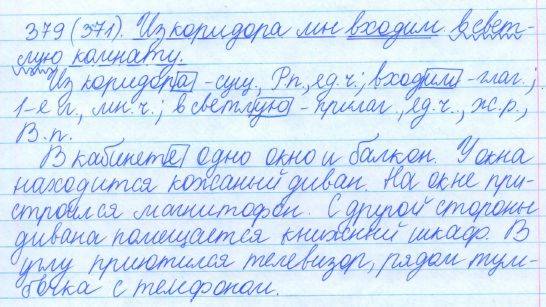 379 (371). Из коридора мы входим в свет-
лую комнату.
Из коридора - сущ., Р.п., ед.ч.; входим - глаг.;
1-е л., мн.ч.; в светлую - прилаг., ед.ч., ж.р.,
В.п.
В кабинете одно окно и балкон. У окна
находится кожаный диван. На окне при-
строился магнитофон. С другой стороны
дивана помещается книжный шкаф. В
углу приютился телевизор, рядом тум-
бочка с телефоном.